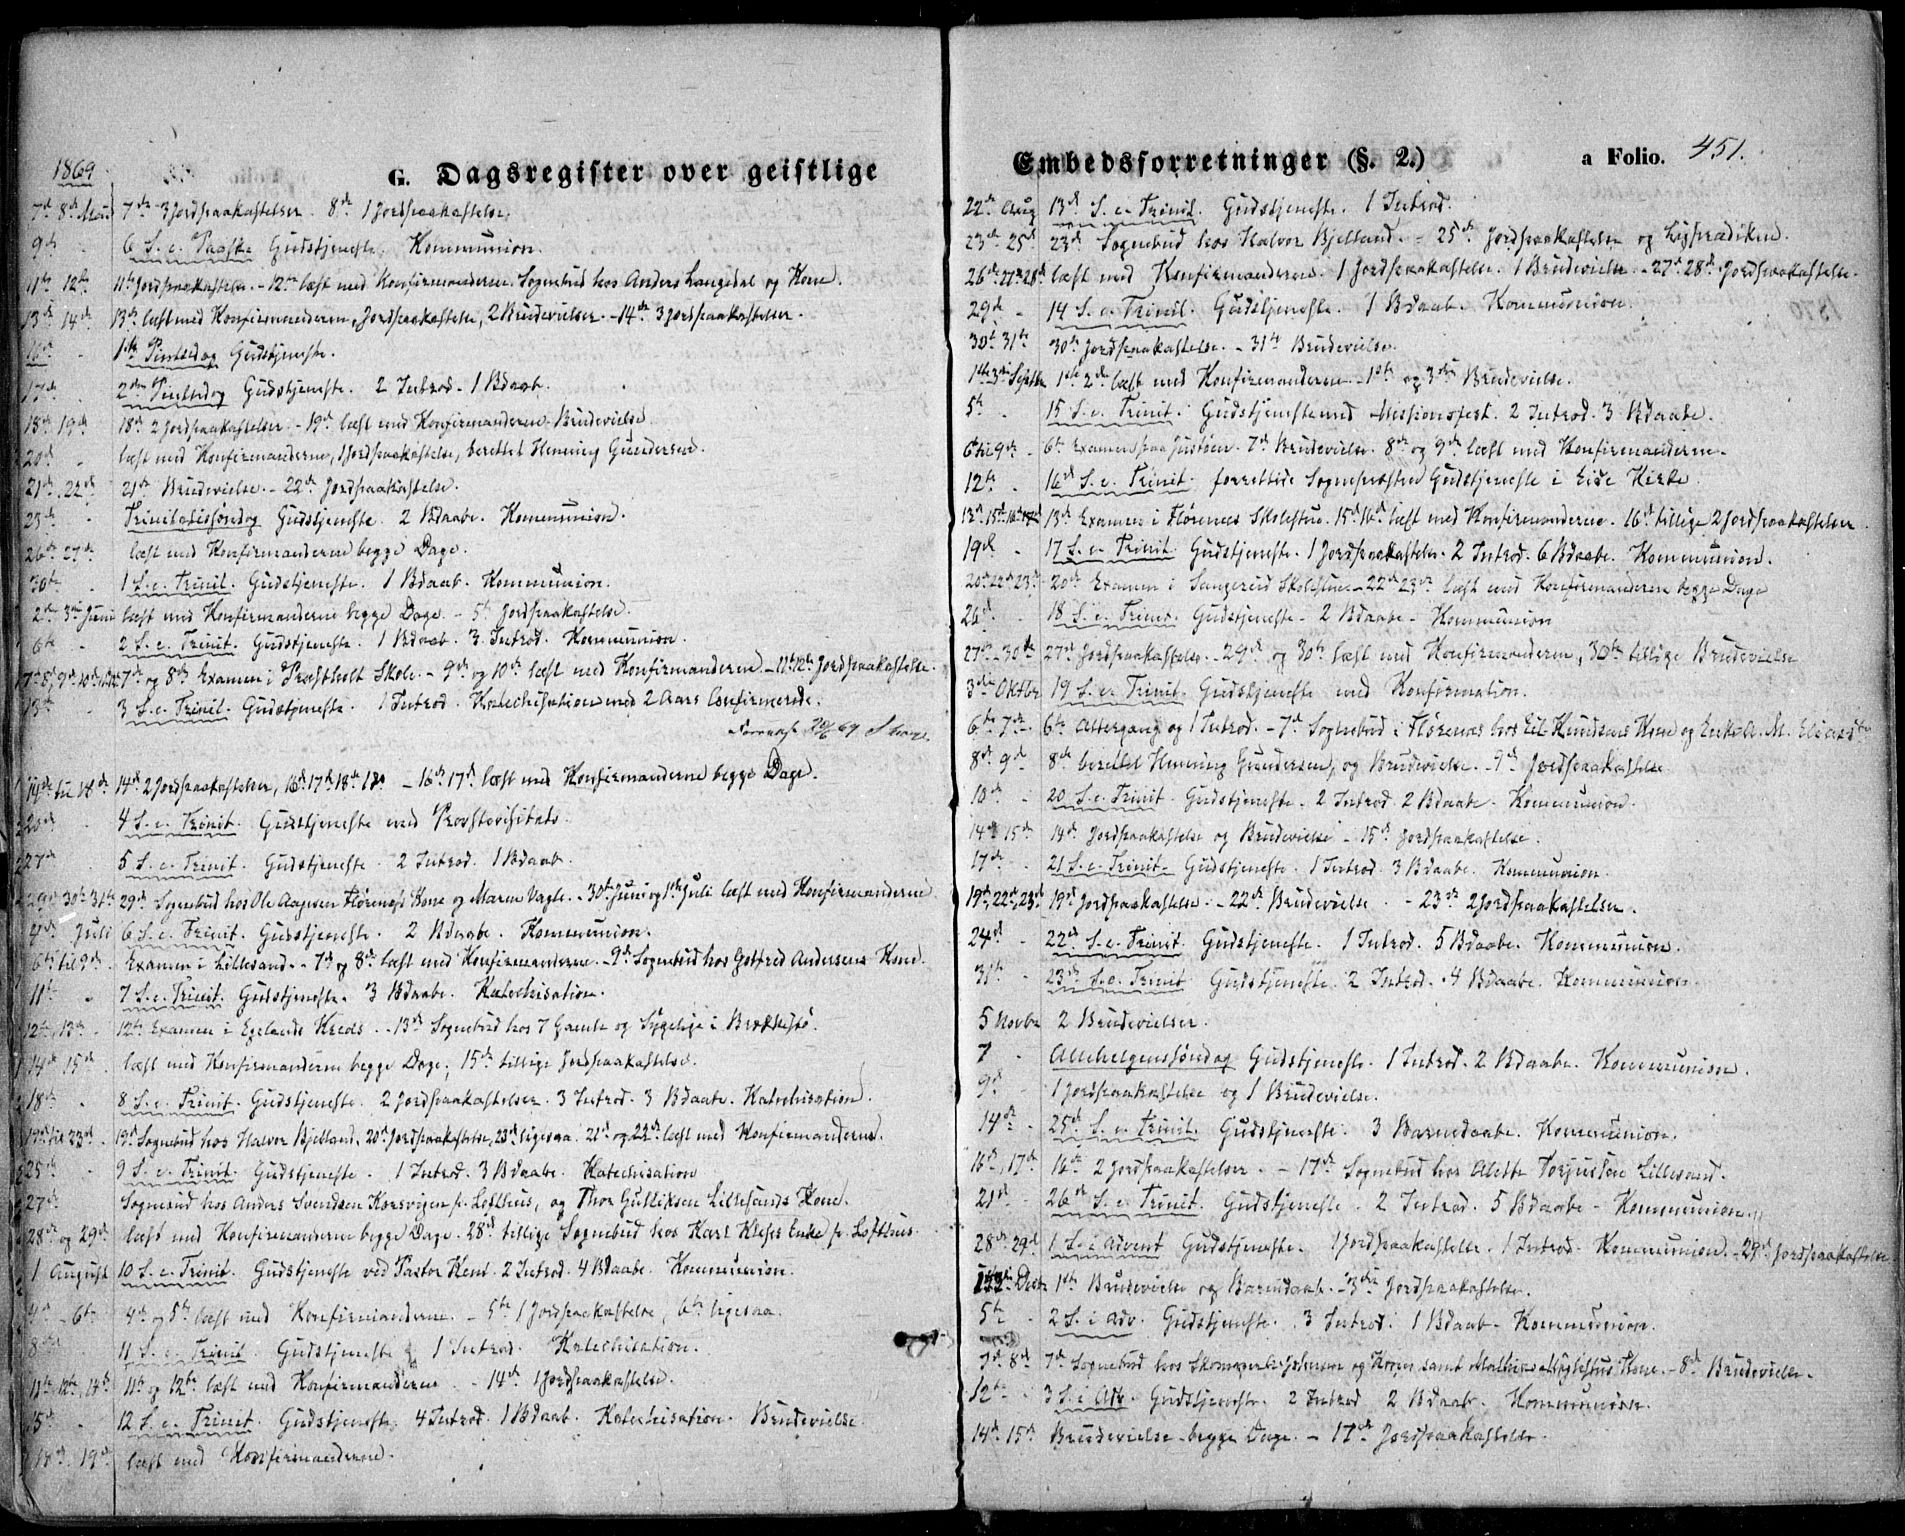 1869
G. Dagsregister over geistlige
7de 8de Mai 7de 3 Jordpaakastelser. 8de 1 Jordpaakastelse.
9de 6 S. e. Paaske Gudstjeneste. Kommunion.
11te 12te 11te Jordpaakastelse. - 12te læst med Konfirmanderne. Sognebud hos Anders Langedal og Kone.
13de 14de 13de læst med Konfirmanderne, Jordpaakastelse, 2 Brudevielser. - 14de 3 Jordpaakastelser.
16de 1ste Pintsedag Gudstjeneste.
17de 2den Pintsedag Gudstjeneste. 2 Introd. 1 Bdaab.
18de, 19de 18de 2 Jordpaakastelser. - 19de læst med Konfirmanderne. Brudevielse
20de læst med Konfirmanderne, 1 Jordpaakastelse, berettet Henning Gundersen.
21de, 22de 21de Brudevielse. - 22de Jordpaakastelse.
23de Trinitatissøndag Gudstjeneste. 2 Bdaabe. Kommunion.
26de 27de læst med Konfirmanderne begge Dage.
30te 1 S. e. Trinit. Gudstjeneste. 1 Bdaab. Kommunion.
2de 3die Juni læst med Konfirmanderne begge Dage. - 5te Jordpaakastelse.
6te 2 S. e. Trinit. Gudstjeneste. 1 Bdaab. 3 Introd. Kommunion.
7de 8de, 9de 10de, 11te 12te 7de og 8de Examen i Præstholt Skole. - 9de og 10de læst med Konfirmanderne. - 11te 12te Jordpaakastelse.
13de 3 S. e. Trinit. Gudstjeneste. 1 Introd. Katechisation med 2 Aars Confirmerede.
20/6 69
14de til 18de 14de 2 Jordpaakastelser, 16de 17de 18de - 16de 17de læst med Konfirmanderne begge Dage.
20de 4 S. e. Trinit. Gudstjeneste med Provstevisitats.
27de 5 S. e. Trinit. Gudstjeneste. 2 Introd. 1 Bdaab.
29de 30te 31te 29de Sognebud hos Ole Aagesen Florenes's Kone og Maren Vagle. - 30te Juni og 1ste Juli læst med Konfirmanderne
4de Juli 6 S. e. Trinit. Gudstjeneste. 2 Bdaabe. Kommunion.
6te til 9de Examen i Lillesand. - 7de og 8de læst med Konfirmanderne. - 9de Sognebud hos Gotfred Andersens Kone.
11te 7 S. e. Trinit. Gudstjeneste. 3 Bdaabe. Katechisation.
12te, 13de 12te Examen i Egelands Kreds. - 13de Sognebud hos 7 Gamle og Sygelige i Brekkestø.
14de 15de læst med Konfirmanderne begge Dage, 15de tillige Jordpaakastelse.
18de 8 S. e. Trinit. Gudstjeneste. 2 Jordpaakastelser. 3 Introd. 3 Bdaabe. Katechisation.
19de til 23de 19de Sognebud hos Halvor Bjelland. 20de Jordpaakastelse, 23de ligesaa. 21de og 22de læst med Konfirmanderne.
25de 9 S. e. Trinit. Gudstjeneste. 1 Introd. 3 Bdaabe. Katechisation
27de Sognebud hos Anders Svendsen Korsvigen p. Lofthus, og Thor Gulliksen Lillesands Kone.
28de og 29de læst med Konfirmanderne begge Dage. 28de tillige Sognebud hos Karl Enke p. Lofthus.
1 August 10 S. e. Trinit. Gudstjeneste ved Pastor. 2 Introd. 4 Bdaabe. Kommunion.
4de - 6te 4de og 5te læst med Konfirmanderne. - 5te 1 Jordpaakastelse, 6te ligesaa.
8de 11 S. e. Trinit. Gudstjeneste 1 Introd. Katechisation.
11te, 12te, 14de 11te og 12te læst med Konfirmanderne - 14de 1 Jordpaakastelse.
15de 12 S. e. Trinit. Gudstjeneste. 4 Introd. 1 Bdaab. Katechisation. Brudevielse.
18de, 19de læst med Konfirmanderne.
Embedsforretninger (§. 2.) a Folio. 451.
22de Aug 13de S. e. Trinit. Gudstjeneste. 1 Introd.
23de 25de 23de Sognebud hos Halvor Bjelland. - 25de Jordpaakastelse og Ligprædiken.
26de 27de 28de læst med Konfirmanderne. 1 Jordpaakastelse. 1 Brudevielse. - 27de 28de Jordpaakastelse.
29de 14 S. e. Trinit. Gudstjeneste. 1 Bdaab. Kommunion.
30te 31te 30te Jordpaakastelse. - 31te Brudevielse.
1ste 3die Septbr 1ste 2de læst med Konfirmanderne - 1ste og 3die Brudevielse.
5te 15 S. e. Trinit. Gudstjeneste med Missionsfest. 2 Introd. 3 Bdaabe.
6te til 9de 6te Examen paa Justøen. 7de Brudevielse. 8de og 9de læst med Konfirmanderne.
12te 16de S. e. Trinit. forrettede Sognepræsten Gudstjeneste i Eide Kirke.
13de 15de 16de 17de 13de Examen i Flørenes Skolestue. 15de 16de læst med Konfirmanderne. 16de tillige 2 Jordpaakastelser
19de 17 S. e. Trinit. Gudstjeneste. 1 Jordpaakastelse. 2 Introd. 6 Bdaabe. Kommunion.
20de 22de 23de 20de Examen i Sangereid Skolestue. - 22de 23de læst med Konfirmanderne begge Dage
26de 18 S. e. Trinit. Gudstjeneste - 2 Bdaabe - Kommunion
27de - 30te 27de Jordpaakastelse. - 29de og 30te læst med Konfirmanderne, 30te tillige Brudevielse
3die Oktbr 19 S. e. Trinit. Gudstjeneste med Konfirmation.
6te 7de 6te Altergang og 1 Introd. - 7de Sognebud i Flørenes hos Knudsens Kone og Enke A. M.
8de 9de 8de berettet Henning Gundersen, og Brudevielse. - 9de Jordpaakastelse
10de 20 S. e. Trinit. Gudstjeneste. 2 Introd. 2 Bdaabe. Kommunion.
14de 15de 14de Jordpaakastelse og Brudevielse - 15de Jordpaakastelse.
17de 21 S. e. Trinit. Gudstjeneste. 1 Introd. 3 Bdaabe. Kommunion
19de, 22de, 23de 19de Jordpaakastelse. - 22de Brudevielse. - 23de 2 Jordpaakastelser.
24de 22de S. e. Trinit. Gudstjeneste. 1 Introd. 5 Bdaabe. Kommunion.
31te 23de S. e. Trinit. Gudstjeneste. 2 Introd. 4 Bdaabe. Kommunion.
5 Novbr 2 Brudevielser.
7 Allehelgenssøndag Gudstjeneste. 1 Introd. 2 Bdaabe. Kommunion.
9de 1 Jordpaakastelse og 1 Brudevielse.
14de 25de S. e. Trinit. Gudstjeneste. 3 Barnedaabe. Kommunion.
16de, 17de 16de 2 Jordpaakastelser. - 17de Sognebud hos Alette Torjussen Lillesand.
21de 26de S. e. Trinit. Gudstjeneste. 2 Introd. 5 Bdaabe - Kommunion.
28de 29de 1 S. i Advent Gudstjeneste. 1 Jordpaakastelse. 1 Introd. Kommunion. - 29de Jordpaakastelse
Decbr 1ste Brudevielse og Barnedaab. - 3die Jordpaakastelse.
5te 2 S. i Adv. Gudstjeneste. 3 Introd. 1 Bdaab. Kommunion.
7de 8de 7de Sognebud hos og Kone samt Kone. - 8de Brudevielse.
12te 3 S. i Adv. Gudstjeneste. 2 Introd. 2 Bdaab. Kommunion.
14de 15de Brudevielse begge Dage. - 17de Jordpaakastelse.